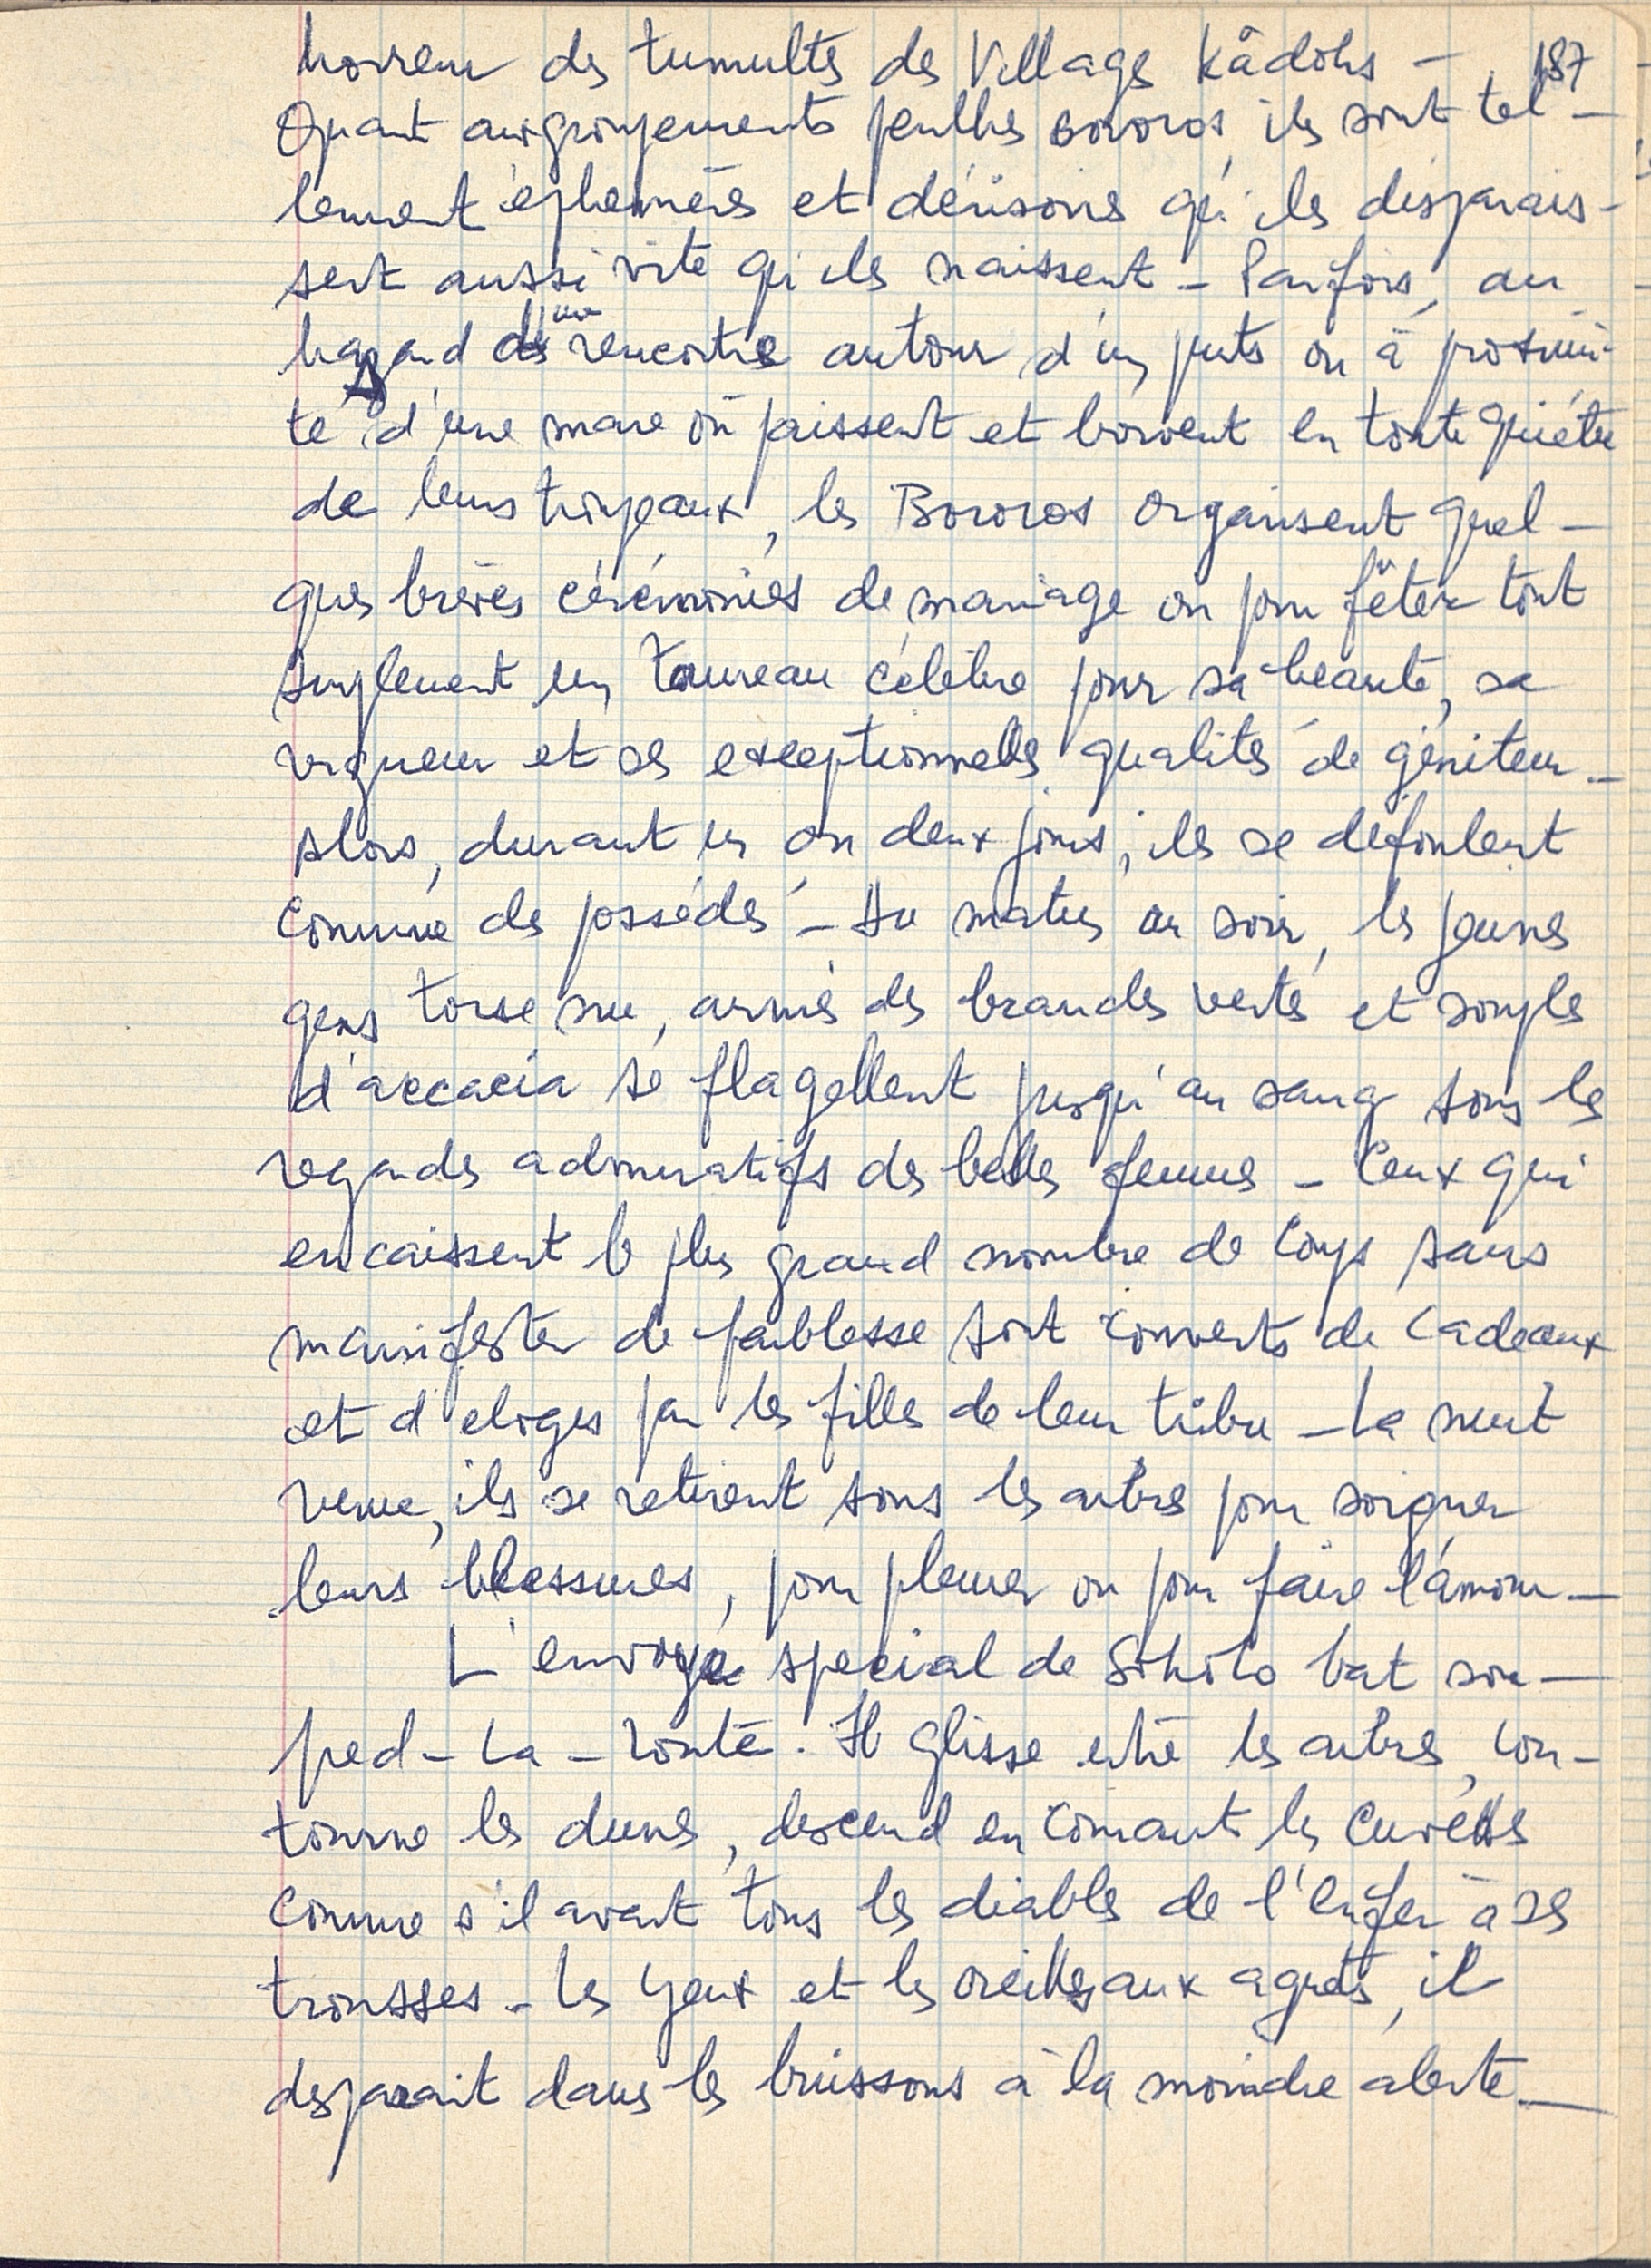 horreur des tumultes des Villages Kâdohs – 187
Quant aux groupements peulhs Bororos, ils sont tel-
lement éphemères et dérisoires qu'ils disparais-
sent aussi vite qu'ils naissent – Parfois, au
hasard d'une rencontre autour d'un puits ou à proximi-
té d'une mare où paissent et boivent en toute quiétu
de leurs troupeaux, les Bororos organisent quel-
ques brèves cérémonies de mariage ou pour fêter tout
simplement un taureau célèbre pour sa beauté, sa
vigueur et ses exceptionnelles qualités de géniteur –
Alors, durant un ou deux jours, ils se défoulent
comme des possédés – Au matin au soir, les jeunes
gens torse nu, armés des branches vertes et souples
d'accacia se flagellent jusqu'au sang sous les
regards admiratifs des belles femmes – Ceux qui
encaissent le plus grand nombre de coups sans
manifester de faiblesse sont couverts de cadeaux
et d'eloges par les filles de leur tribu – La nuit
venue, ils se retirent sous les arbres pour soigner
leurs blessures, pour pleurer ou pour faire l'amour –
L'envoyé special de Sihoto bat son –
pied – La – route. Il glisse entre les arbres, con-
tourne les dunes, descend en courant les cuvettes
comme s'il avait tous les diables de l'enfer à ses
trousses – Les yeux et les oreilles aux aguets, il
disparait dans les buissons à la moindre alerte –